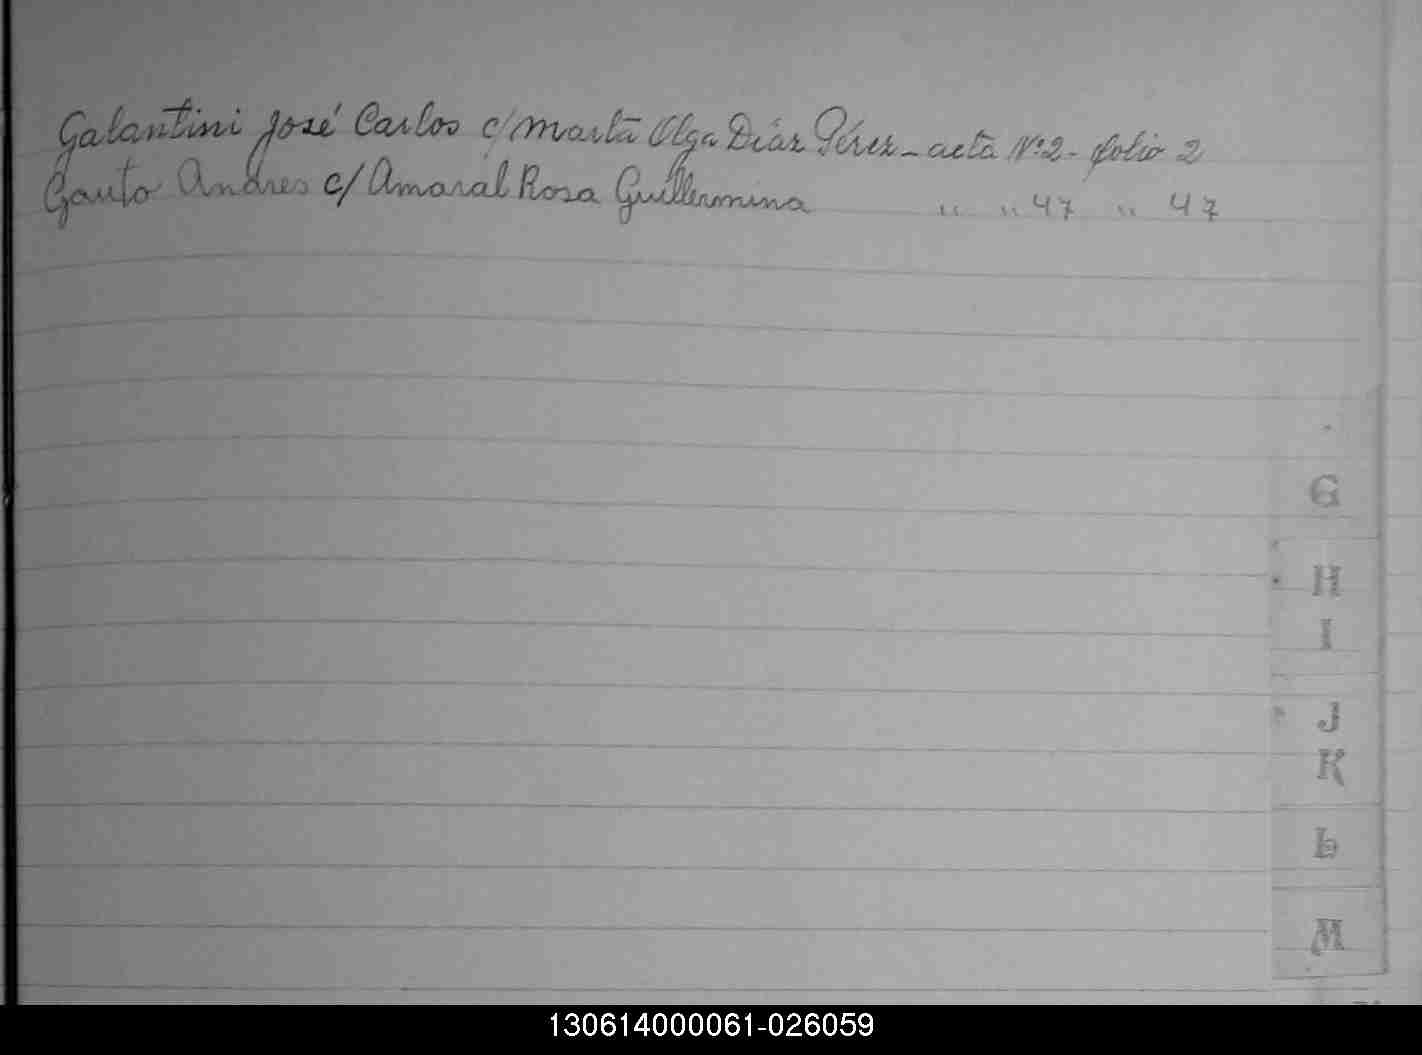 Galantini José Carlos c/ Marta Olga Díaz Pérez - acta Nº 2 - folio 2
Gauto Andres c/ Amaral Rosa Guillermina " " 47 " 47
G
H
I
J
K
L
M
130614000061-026059